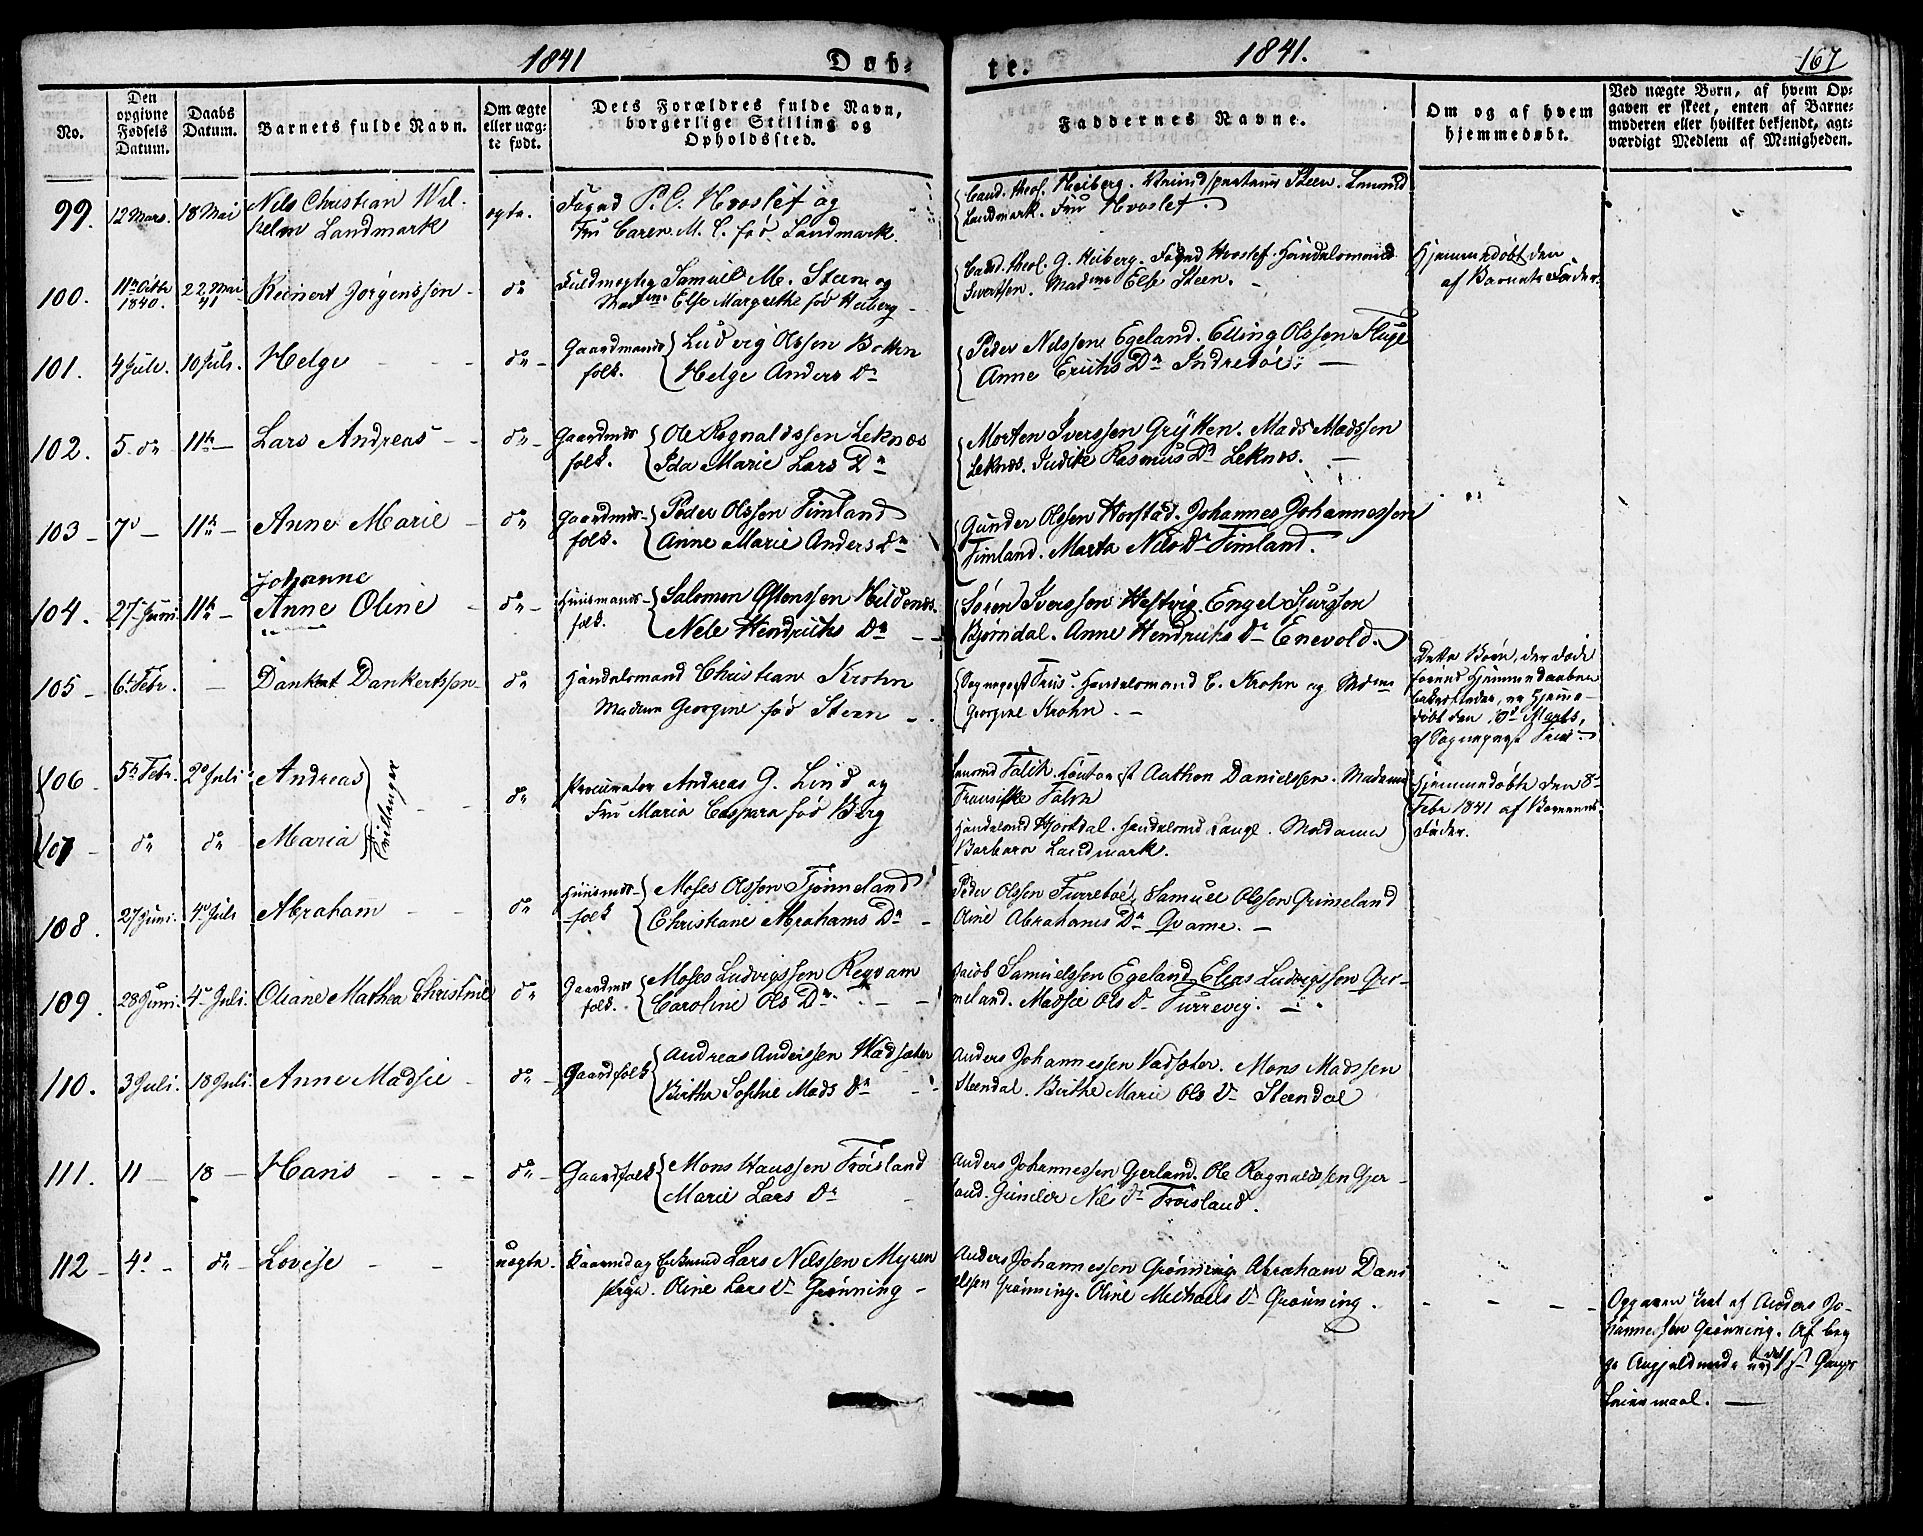 1841
Døb-
te.
1841.
167
No.
Den opgivne Fødsels Datum.
Daabs Datum.
Barnets fulde Navn.
Om ægte eller uæg-te født.
Dets Forældres fulde Navn, borgerlige Stilling og Opholdssted.
Faddernes Navne.
Om og af hvem hjemmedøbt.
Ved uægte Børn, af hvem Op-
gaven er skeet, enten af Barne-
moderen eller hvilket bekjendt, agt-
værdigt Medlem af Menigheden.
99. 12 Mars. 18 Mai Nils Christian Wil-
helm Landmark
egte. Foged P. C. Hvoslef og
Fru Caren M. C. fød Landmark.
Cand. theol. Heiberg. Steen.
Landmark. Fru Hvoslef.
100. 11te Octbr 1840. 22 Mai 41 Reinert Jørgenssøn - do
Fuldmegtig Samuel M. Steen og
Madme Else Margrethe fød Heiberg -
Cand. theol. G. Heiberg. Foged Hvoslef. Handelsmand
Sivertsen. Madme Else Steen. -
Hjemmedøbt den
af Barnets Fader.
101. 4 Juli. 10 Juli. Helge - - - do -
Gaardmands folk. Ludvig Olssen Botten
Helge Anders Dr
Peder Nilssen Egeland. Elling Olssen Fluge
Anne Erichs Dr Indrebøe. -
102. 5 do 11te - Lars Andreas - - do -
Gaardmds folk. Ole Rognaldssen Leknes
Ida Marie Lars Dr
Morten Iverssen Grytten. Mads Madssen
Leknes. Rasmus Dr Leknes. -
103 - 7de - 11te - Anne Marie - do
Gaardmds- folk. Peder Olssen Timland
Anne Marie Anders Dr
Gunder Olssen Horstad. Johannes Johannessen
Timland. Marta Nils Dr Timland.
Johanne
104. 27 Juni 11te - Anne Oline - do -
Huusmands- folk. Salomon Hildenes.
Nele Hendrichs Dr - -
Søren Iverssen Hestvig. Engel
Bjørndal. Anne Hendrichs Dr Enevold.
105 - 6te Febr. - Dankert Dankertssøn - do
Handelsmand Christian Krohn
Madame Georgine fød Steen - .
Sognepræst Friis. Handelsmand C. Krohn og Madme
Georgine Krohn. -
Dette Barn, der døde
forend Hjemmedaaben
og Hjemme-
døbt den Marts,
af Sognepræst Friis -
106 - 5te Febr. 20 Juli Andreas
107 - do do Maria
Tvillinger - -
do
Procurator Andreas G. Lind og
Fru Maria Caspara fød Berg
Falch. Danielssen. Madame
Fransiske Falch
Handelsmd Hjortdal. Handelsmd Lange. Madame
Barbara Landmark.
Hjemmedøbte den 8de
Febr 1841 af Børnenes
Fader.
108. 27 Juni. 4de Juli Abraham - - do
Huusmds- folk Moses Olssøn Tjønneland
Christiane Abrahams Dr -
Peder Olssen Furrebøe, Samuel Olssen Grimeland
Oline Abrahams Dr Qvame. -
109. 28 Juni. 4de Juli. Oliane Mathea Christine do
Gaardmds folk. Moses Ludvigssen Reqvam
Caroline Ols Dr. - -
Jacob Samuelssen Egeland, Elias Ludvigssen Gri-
meland. Madsie Ols Dr Furrevig. -
110. 3 Juli. 18 Juli. Anne Madsie - do -
Gaardfolk Andreas Anderssen Vadsæter
Birthe Sophie Mads Dr - -
Anders Johannessen Vadsæter. Mons Madssen
Steendal. Birthe Marie Ols Dr Steendal
111. 11 - 18 - Hans - - - do -
Gaardfolk Mons Hanssen Frøisland
Marie Lars Dr -
Anders Johannessen Gjerland. Ole Rognaldssen Gjer-
land. Gunder Nils Dr Frøisland.
112 - 4de - do - Lovise - - uægte.
Lars Nilssen Myren
pige. Oline Lars Dr Grønning -
Anders Johannessen Grønning Abraham Dani
elssen Grønning. Oline Michaels Dr Grønning.
- - - -
Opgaven skeet af Anders Jo-
hannessen Grønning. Af beg
ge Angjeldende 1ste Gangs
Leiermaal. -